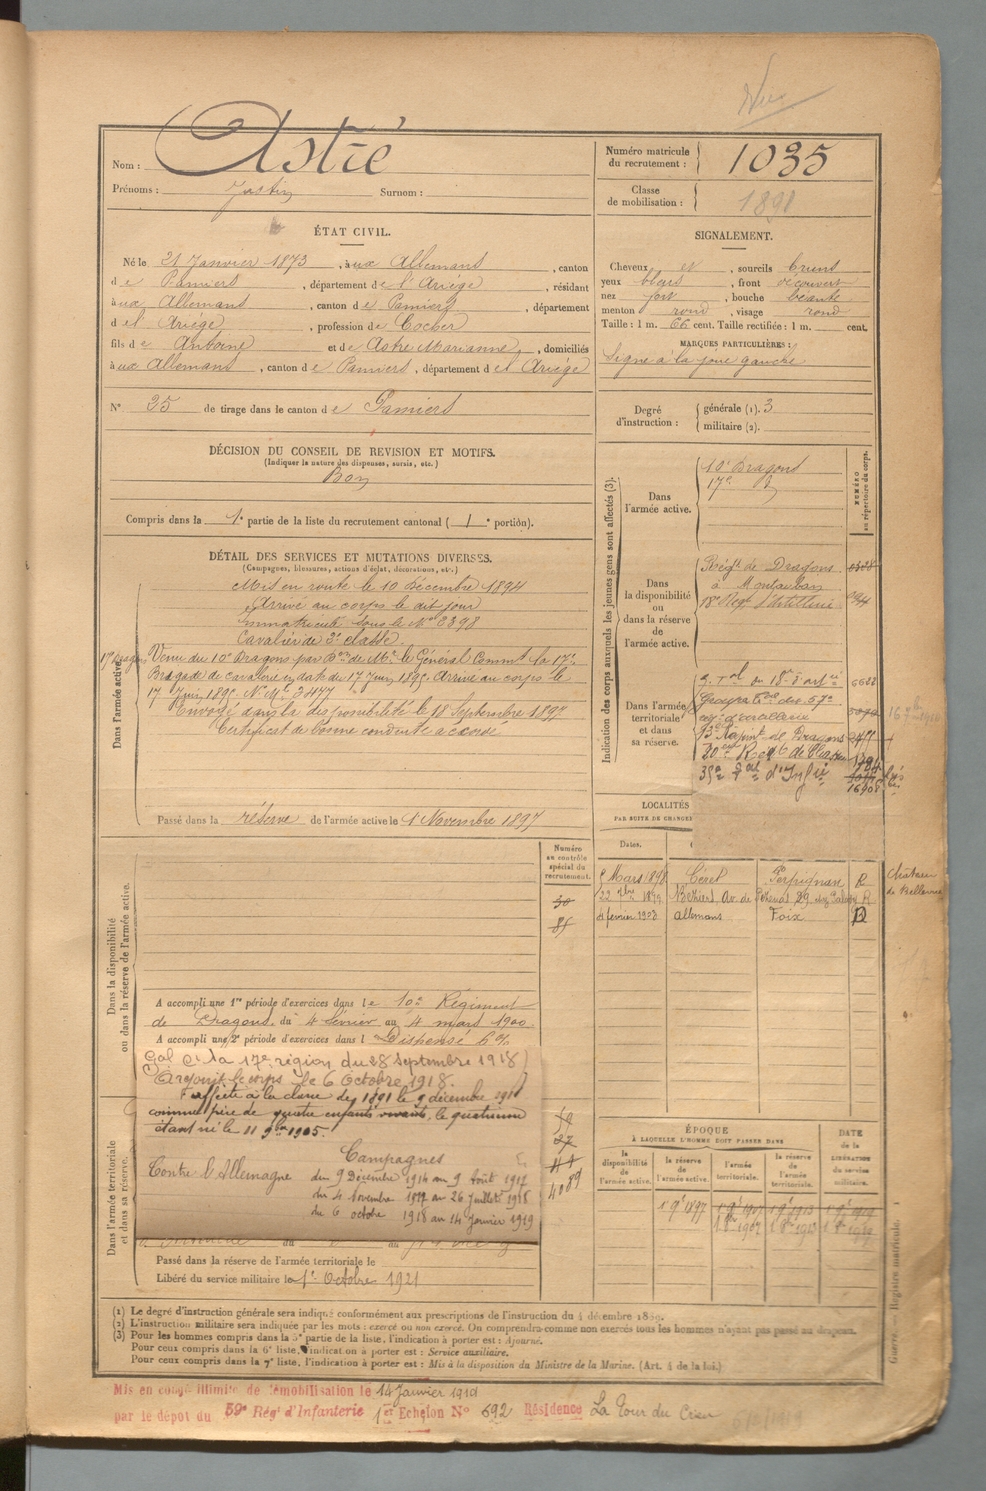 Vu
Nom : Astié
Prénoms : Justin Surnom :
Numéro matricule du recrutement : 1035
Classe de mobilisation : 1891
ÉTAT CIVIL.
Né le 21 Janvier 1873, à ux Allemans, canton
d e Pamiers, département de l'Ariège, résidant
à ux Allemans, canton d e Pamiers, département
d el Ariège, profession de Cocher
fils d e Antoine et de Astre Marianne, domiciliés
à ux Allemans, canton d e Pamiers, département d el Ariège
N° 25 de tirage dans le canton d e Pamiers
SIGNALEMENT.
Cheveux et, sourcils bruns
yeux bleus, front découvert
nez fort, bouche béante
menton rond, visage rond
Taille : 1 m. 66 cent. Taille rectifiée : 1 m. cent.
MARQUES PARTICULIÈRES :
Signe à la joue gauche
Degré d'instruction : générale (1). 3
militaire (2).
DÉCISION DU CONSEIL DE REVISION ET MOTIFS.
(Indiquer la nature des dispenses, sursis, etc.)
Bon
Compris dans la 1e partie de la liste du recrutement cantonal ( 1 e portion).
DÉTAIL DES SERVICES ET MUTATIONS DIVERSES.
(Campagnes, blessures, actions d'éclat, décorations, etc.)
Dans l'armée active.
Mis en route le 10 Décembre 1894
Arrivé au corps le dit jour
Immatriculé sous le N° 8398
Cavalier de 2e classe.
17e Dragons Venu du 10e Dragons par Don de Mr le Général Commt la 17e
Brigade de cavalerie en date du 17 Juin 1895. Arrivé au corps le
17 Juin 1895. N° Mle 2477
Envoyé dans la disponibilité le 18 Septembre 1897
Certificat de bonne conduite accordé
Passé dans la réserve de l'armée active le 1 Novembre 1897
Indication des corps auxquels les jeunes gens sont affectés (3).
NUMÉRO au répertoire du corps.
Dans l'armée active.
10e Dragons
17e
Dans la disponibilité ou dans la réserve de l'armée active.
Régt de Dragons
à Montauban
18e Regt d'Artillerie
Dans l'armée territoriale et dans sa réserve.
Groupe du 57e
d'artillerie
de Dragons 2411
16908
LOCALITÉS
PAR SUITE DE CHANGE
Dates.
Mars 1898 Céret Perpignan R
22 9bre 1899 Béziers, Av. de R
4 février 1903 Allemans Foix R
Château de Bellevue
Dans la disponibilité ou dans la réserve de l'armée active.
Numéro au contrôle spécial du recrutement.
30
85
A accompli une 1re période d'exercices dans le 10e Régiment
de Dragons du 4 février au 4 mars 1900.
A accompli une 2e période d'exercices dans l Dispensé
Gal Ct la 17e région du 28 Septembre 1918
A rejoint le corps le 6 Octobre 1918.
Raffecté à la classe de 1891 le 9 décembre 1918
comme père de quatre enfants vivants, le quatrième
étant né le 11 9bre 1905.
Campagnes
Contre l'Allemagne du 9 Décembre 1914 au 9 Août 1917
du 4 Novembre 1917 au 26 Juillet 1918
du 6 octobre 1918 au 14 Janvier 1919
Dans l'armée territoriale et dans sa réserve.
27
4089
Passé dans la réserve de l'armée territoriale le
Libéré du service militaire le 1er Octobre 1921
ÉPOQUE
À LAQUELLE L'HOMME DOIT PASSER DANS
la disponibilité de l'armée active.
la réserve de l'armée active.
l'armée territoriale.
la réserve de l'armée territoriale.
DATE de la LIBÉRATION du service militaire.
(1) Le degré d'instruction générale sera indiqué conformément aux prescriptions de l'instruction du 4 décembre 1889.
(2) L'instruction militaire sera indiquée par les mots : exercé ou non exercé. On comprendra comme non exercés tous les hommes n'ayant pas passé au drapeau.
(3) Pour les hommes compris dans la 5e partie de la liste, l'indication à porter est : Ajourné.
Pour ceux compris dans la 6e liste, l'indication à porter est : Service auxiliaire.
Pour ceux compris dans la 7e liste, l'indication à porter est : Mis à la disposition du Ministre de la Marine. (Art. 4 de la loi.)
Registre matricule.
Mis en congé illimité de démobilisation le 14 Janvier 1919
par le dépôt du 59e Rég' d'Infanterie 1er Echelon N° 692 Résidence La Tour du Crieu